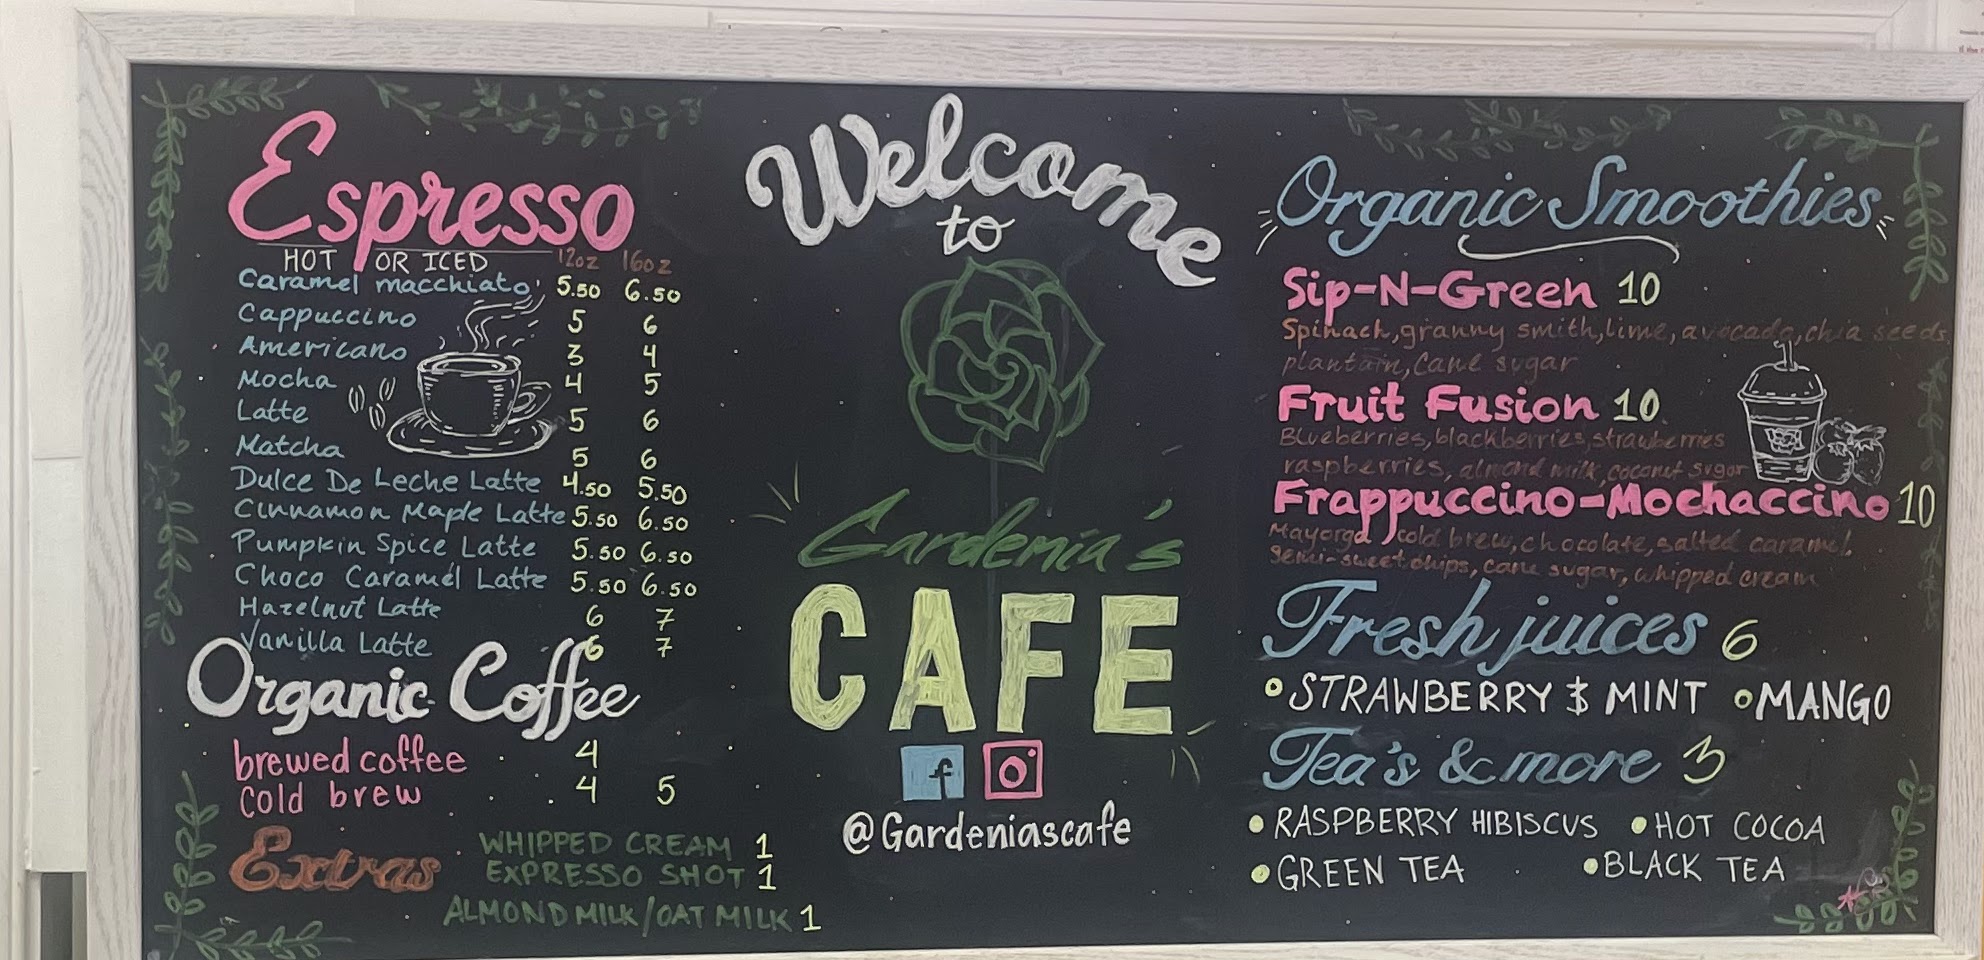 Espresso
HOT OR ICED 12oz 16oz
Caramel macchiato 5.50 6.50
Cappuccino 5 6
Americano 3 4
Mocha 4 5
Latte 5 6
Matcha 5 6
Dulce De Leche Latte 4.50 5.50
Cinnamon Maple Latte 5.50 6.50
Pumpkin Spice Latte 5.50 6.50
Choco Caramel Latte 5.50 6.50
Hazelnut Latte 6 7
Vanilla Latte 6 7
Organic Coffee
brewed coffee 4
cold brew 4 5
Extras
WHIPPED CREAM 1
EXPRESSO SHOT 1
ALMOND MILK/OAT MILK 1
Welcome
to
Gardenia's
CAFE
f
@Gardeniascafe
Organic Smoothies
Sip-N-Green 10
Spinach, granny smith, lime, avocado, chia seeds,
plantain, cane sugar
Fruit Fusion 10
Blueberries, blackberries, strawberries
raspberries, almond milk, coconut sugar
Frappuccino-Mochaccino 10
Mayorga cold brew, chocolate, salted caramel,
semi-sweet chips, cane sugar, whipped cream
Fresh juices 6
STRAWBERRY & MINT • MANGO
Tea's & more 3
• RASPBERRY HIBISCUS • HOT COCOA
• GREEN TEA • BLACK TEA